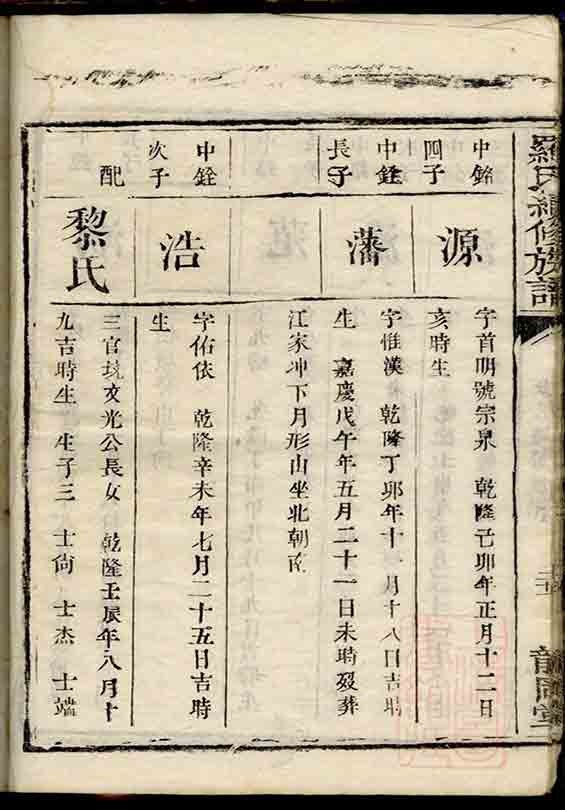 羅氏續修族譜
中銘
四子
源
字首明號宗泉 乾隆己卯年正月十二日
亥時生
中銓
長子
藩
字惟漢 乾隆丁卯年十一月十八日吉時
生 嘉慶戊午年五月二十一日未時歿葬
江家冲下月形山坐北朝南
中銓
次子
浩
字佑依 乾隆辛未年七月二十五日吉時
生
配
黎氏
三官塘文光公長女 乾隆壬辰年八月十
九吉時生 生子三 士尙 士杰 士端